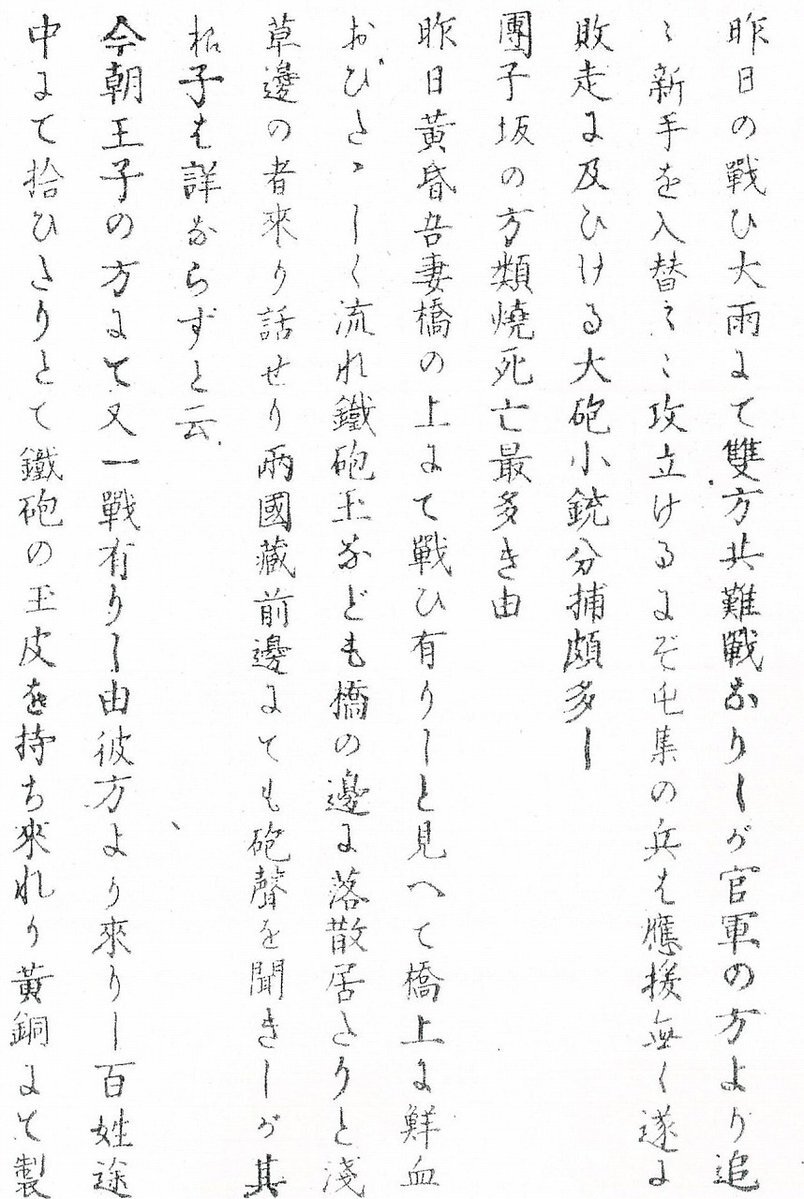 昨日の戰ひ大雨にて雙方共難戰なりしが官軍の方より追
〻新手を入替〻〻攻立けるにぞ屯集の兵は應援無く遂に
敗走に及ひける大砲小銃分捕頗多し
團子坂の方類燒死亡最多き由
昨日黃昏吾妻橋の上にて戰ひ有りしと見へて橋上に鮮血
おびたゝしく流れ鐵砲玉なども橋の邊に落散居たりと淺
草邊の者來り話せり兩國藏前邊にても砲聲を聞きしが其
樣子は詳ならずと云
今朝王子の方にて又一戰有りし由彼方より來りし百姓途
中にて拾ひたりとて鐵砲の玉皮を持ち來れり黃銅にて製